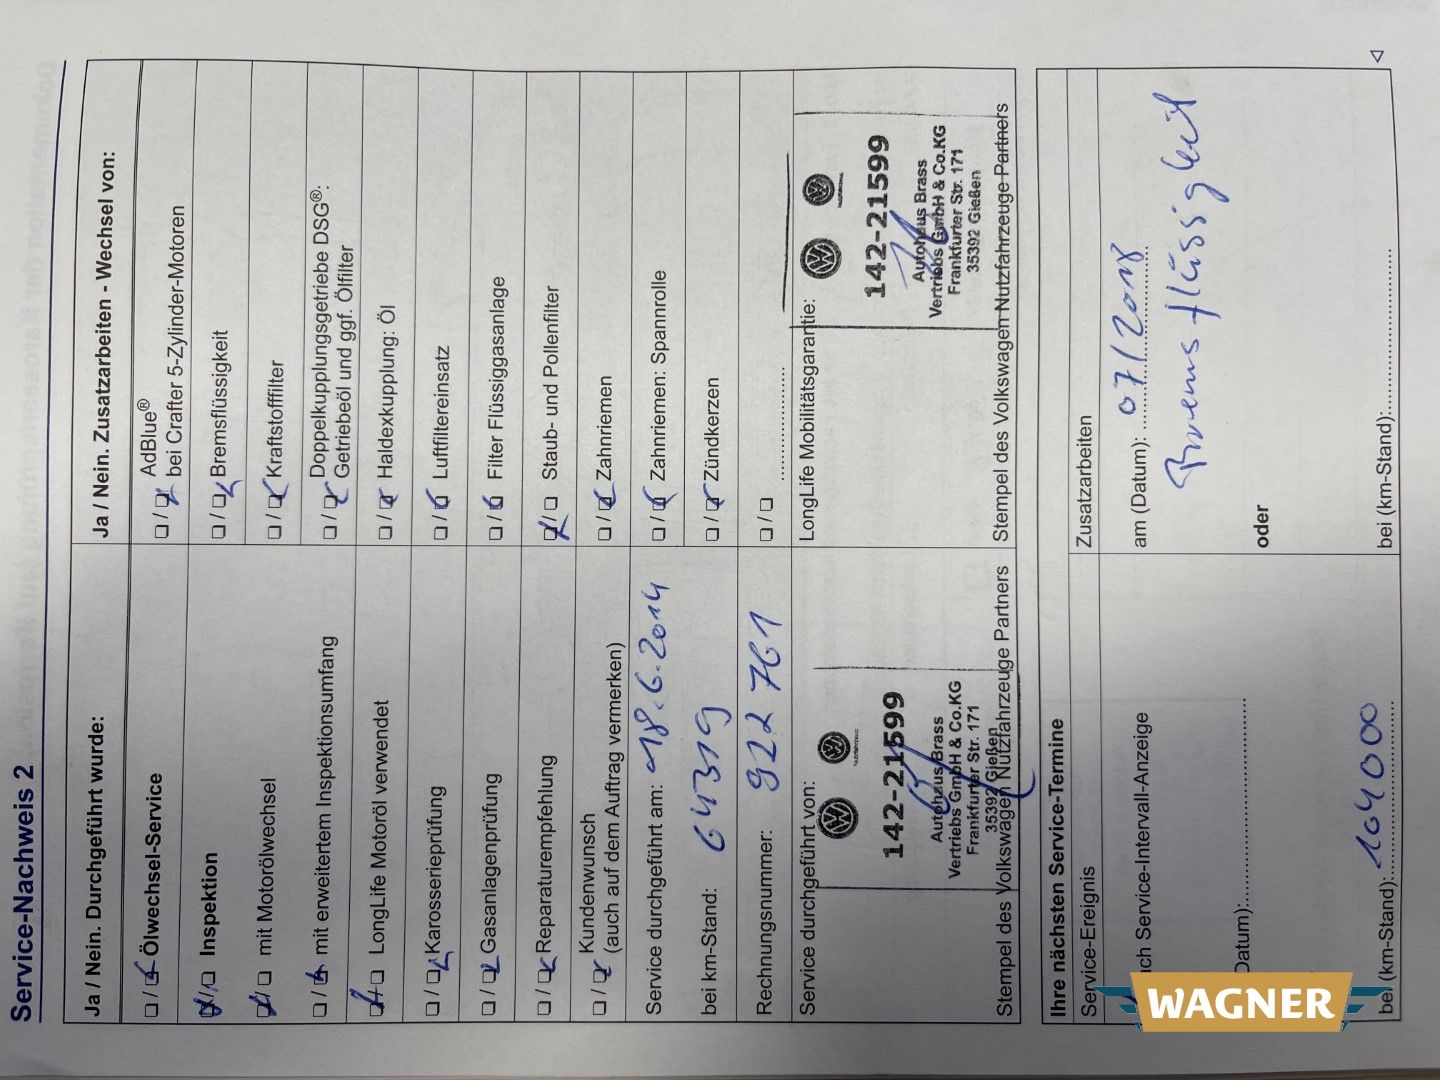 Service-Nachweis 2
Ja / Nein. Durchgeführt wurde:
☐ / ☐ Ölwechsel-Service
☐ / ☐ Inspektion
☐ / ☐ mit Motorölwechsel
☐ / ☐ mit erweitertem Inspektionsumfang
☐ / ☐ LongLife Motoröl verwendet
☐ / ☐ Karosserieprüfung
☐ / ☐ Gasanlagenprüfung
☐ / ☐ Reparaturempfehlung
☐ / ☐ Kundenwunsch
(auch auf dem Auftrag vermerken)
Service durchgeführt am: 18.6.2014
bei km-Stand: 64319
Rechnungsnummer: 922 761
Service durchgeführt von:
142-21599
Autohaus Brass
Vertriebs GmbH & Co.KG
Frankfurter Str. 171
35392 Gießen
Stempel des Volkswagen Nutzfahrzeuge Partners
Ja / Nein. Zusatzarbeiten - Wechsel von:
☐ / ☐ AdBlue®
bei Crafter 5-Zylinder-Motoren
☐ / ☐ Bremsflüssigkeit
☐ / ☐ Kraftstofffilter
☐ / ☐ Doppelkupplungsgetriebe DSG®:
Getriebeöl und ggf. Ölfilter
☐ / ☐ Haldexkupplung: Öl
☐ / ☐ Luftfiltereinsatz
☐ / ☐ Filter Flüssiggasanlage
☐ / ☐ Staub- und Pollenfilter
☐ / ☐ Zahnriemen
☐ / ☐ Zahnriemen: Spannrolle
☐ / ☐ Zündkerzen
☐ / ☐ ....................
LongLife Mobilitätsgarantie:
142-21599
Autohaus Brass
Vertriebs GmbH & Co.KG
Frankfurter Str. 171
35392 Gießen
Stempel des Volkswagen Nutzfahrzeuge Partners
Ihre nächsten Service-Termine
Service-Ereignis
ach Service-Intervall-Anzeige
Datum):....................
bei (km-Stand): 104000
Zusatzarbeiten
am (Datum): 07/2018
Bremsflüssigkeit
oder
bei (km-Stand):....................
WAGNER